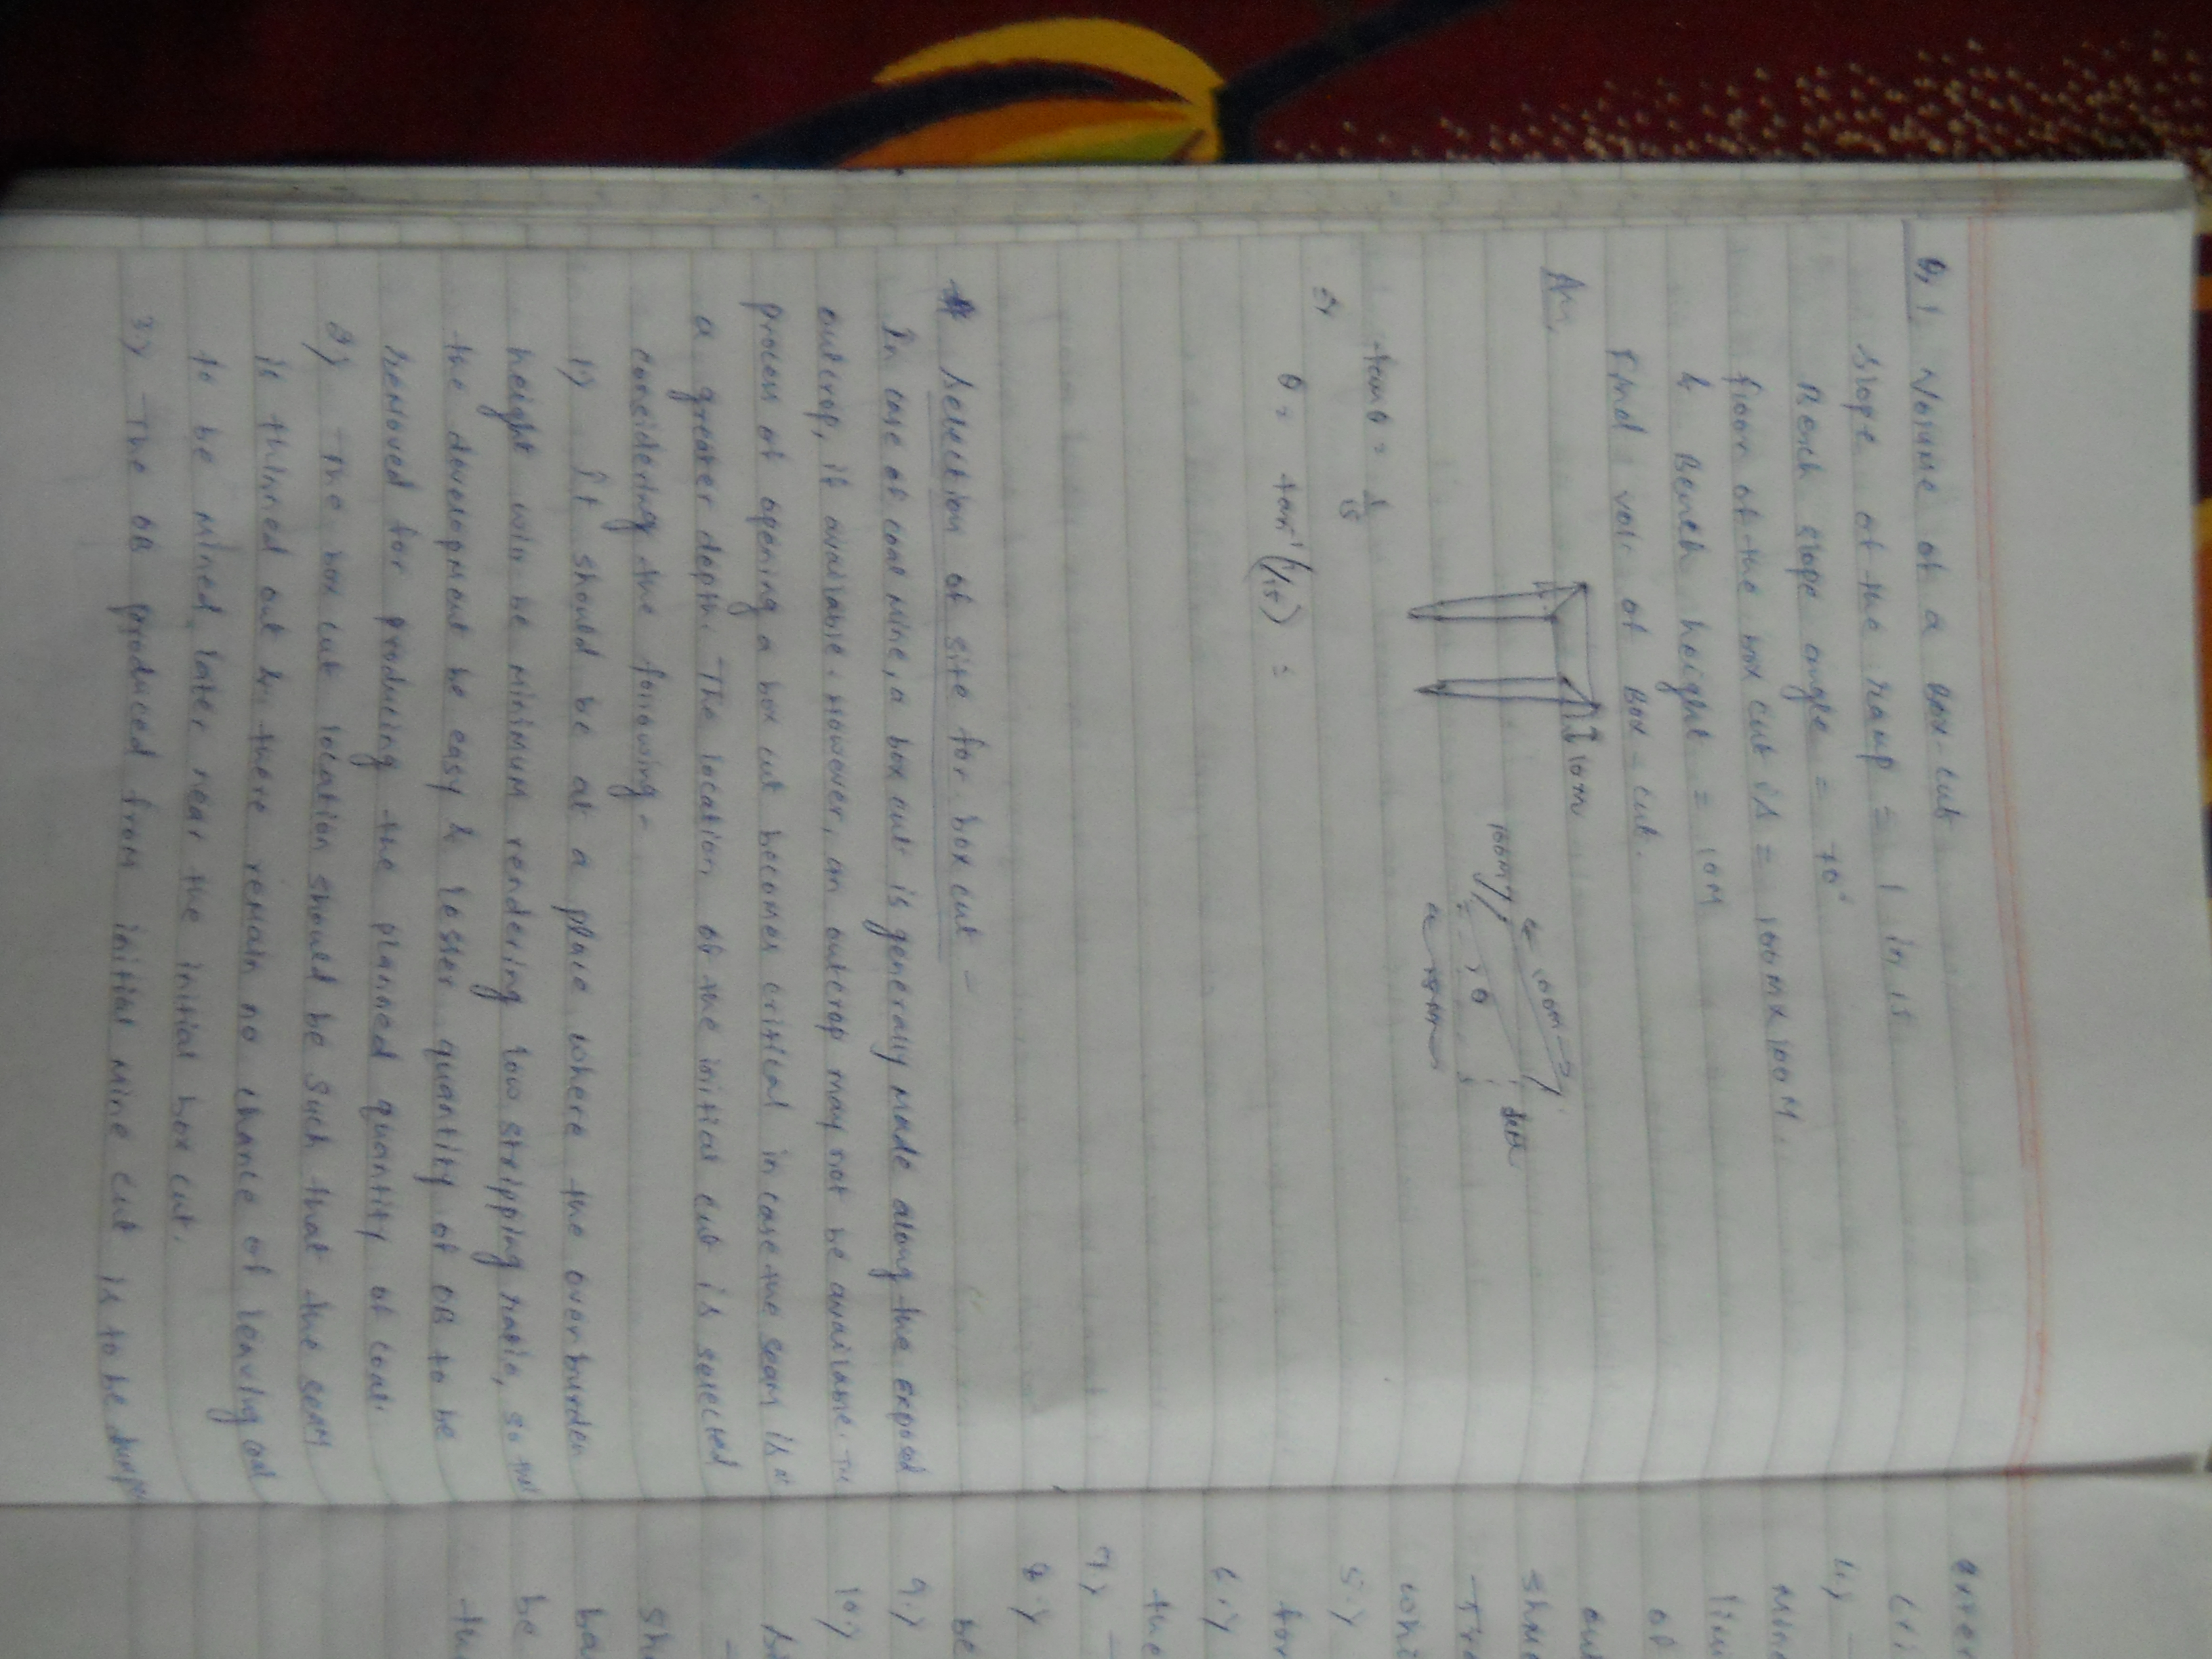 Q,1, Volume of a Box-cut
slope of the ramp = 1 in 15
Bench slope angle = 70°
floor of the box cut is = 100M x 100M.
& Bench height = 10M
Find vol. of Box-cut.
An,
10m
100m
100M
θ
tanθ = 1/15
=>
θ = tan⁻¹(1/15) =
# Selection of site for box cut -
In case of coal mine, a box cut is generally made along the exposed
outcrop, if available. However, an outcrop may not be available. The
process of opening a box cut becomes critical in case the seam is at
a greater depth. The location of the initial cut is selected
considering the following -
1) It should be at a place where the overburden
height will be minimum rendering low stripping ratio, so that
the development be easy & lesser quantity of OB to be
removed for producing the planned quantity of coal.
2) The box cut location should be such that the seam
is thinned out & there remain no chance of leaving coal
to be mined later near the initial box cut.
3) The OB produced from initial mine cut is to be
4)
of
5.)
for
6.)
the
7)
8.)
be
9.)
10.)
be